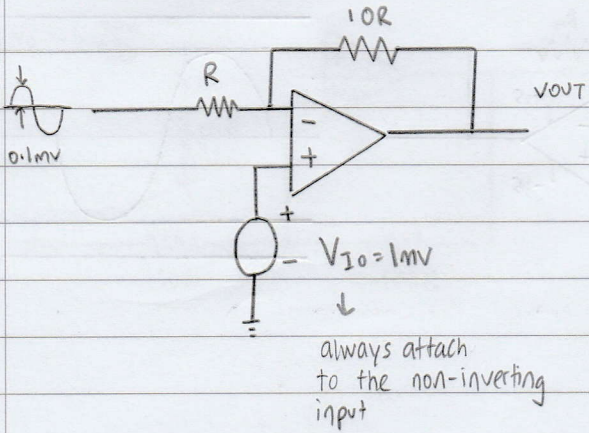 10R
R
VOUT
-
+
0.1mV
+
-
VIO = 1mV
↓
always attach
to the non-inverting
input